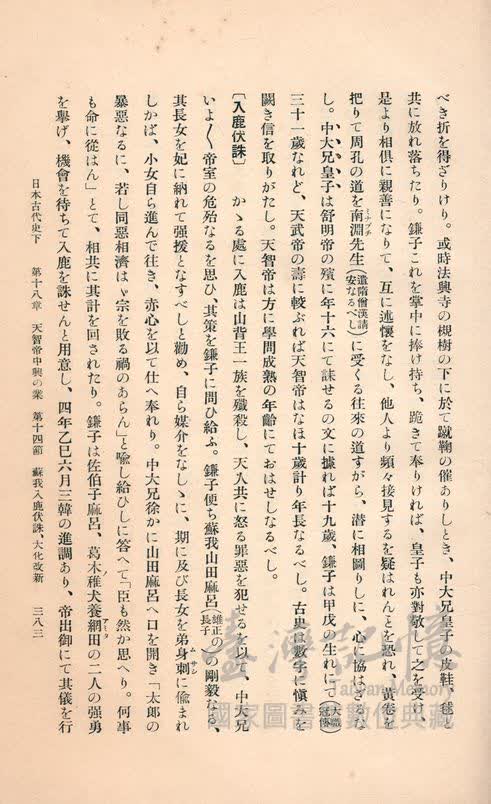 べき折を得ざりけり。或時法興寺の槻樹の下に於て蹴鞠の催ありしとき、中大兄皇子の皮鞋、毬と
共に放れ落ちたり。鎌子これを掌中に捧け持ち、跪きて奉りければ、皇子も亦對敬して之を受け、
是より相倶に親善になりて、互に述懷をなし、他人より頻々接見するを疑はれんとを恐れ、黃卷を
把りて周孔の道を南淵先生(遣隋僧漢請安なるべし)に受くる往來の道すがら、潜に相圖りしに、心に協はざるな
ミナブチ
し。中大兄皇子は舒明帝の殯に年十六にて誄せるの文に據れば十九歲、鎌子は甲戌の生れにて(大織冠傳)
三十一歲なれど、天武帝の壽に較ぶれば天智帝はなほ十歲計り年長なるべし。古史は數字に愼みを
闕き信を取りがたし。天智帝は方に學問成熟の年齡にておはせしなるべし。
〔入鹿伏誅〕 かゝる處に入鹿は山背王一族を殲殺し、天人共に怒る罪惡を犯せるを以て、中大兄
いよ〱帝室の危殆なるを思ひ、其策を鎌子に問ひ給ふ。鎌子便ち蘇我山田麻呂(雄正の長子)の剛毅なる、
其長女を妃に納れて强援となすべしと勸め、自ら媒介をなしゝに、期に及び長女を弟身刺に偸まれ
ムサシ
しかば、小女自ら進んで往き、赤心を以て仕へ奉れり。中大兄徐かに山田麻呂へ口を開き「太郎の
暴惡なるに、若し同惡相濟はゞ宗を敗る禍のあらん」と喩し給ひしに答へて「臣も然か思へり。何事
も命に從はん」とて、相共に其計を回されたり。鎌子は佐伯子麻呂、葛木稚犬養網田の二人の强勇
アミタ
を擧げ、機會を待ちて入鹿を誅せんと用意し、四年乙巳六月三韓の進調あり、帝出御にて其儀を行
日本古代史下 第十八章 天智帝中興の業 第十四節 蘇我入鹿伏誅、大化改新 三八三
臺灣記憶
Taiwan Memory
國家圖書館數位典藏